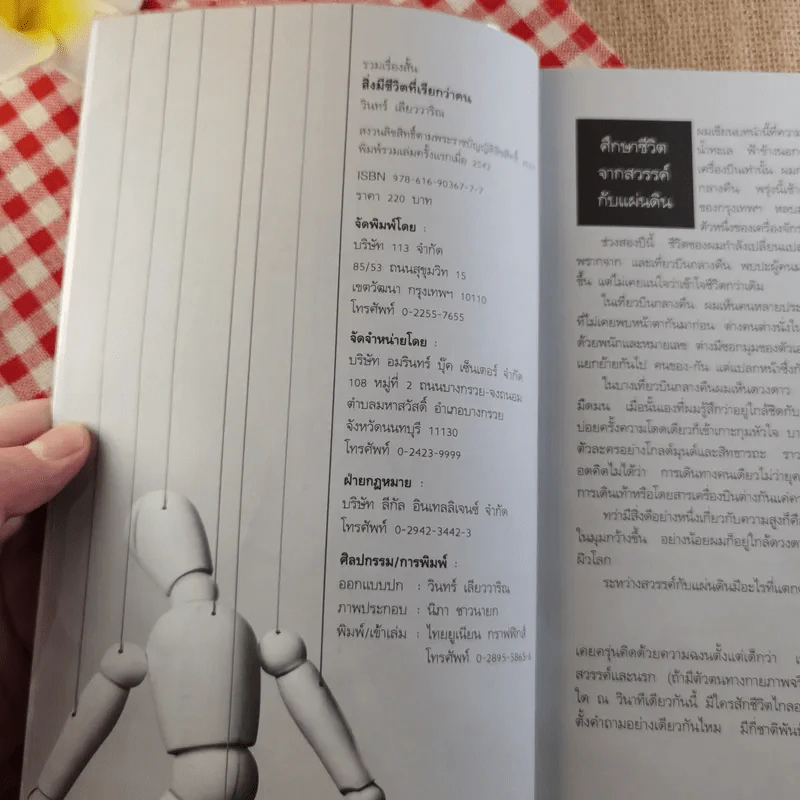 รวมเรื่องสั้น
สิ่งมีชีวิตที่เรียกว่าคน
วินทร์ เลียววาริณ
สงวนลิขสิทธิ์ตามพระราชบัญญัติลิขสิทธิ์
พิมพ์รวมเล่มครั้งแรกเมื่อ 2542
ISBN 978-616-90367-7-7
ราคา 220 บาท
จัดพิมพ์โดย :
บริษัท 113 จำกัด
85/53 ถนนสุขุมวิท 15
เขตวัฒนา กรุงเทพฯ 10110
โทรศัพท์ 0-2255-7655
จัดจำหน่ายโดย :
บริษัท อมรินทร์ บุ๊ค เซ็นเตอร์ จำกัด
108 หมู่ที่ 2 ถนนบางกรวย-จงถนอม
ตำบลมหาสวัสดิ์ อำเภอบางกรวย
จังหวัดนนทบุรี 11130
โทรศัพท์ 0-2423-9999
ฝ่ายกฎหมาย :
บริษัท ลีกัล อินเทลลิเจนซ์ จำกัด
โทรศัพท์ 0-2942-3442-3
ศิลปกรรม/การพิมพ์ :
ออกแบบปก : วินทร์ เลียววาริณ
ภาพประกอบ : นิภา ชาวนายก
พิมพ์/เข้าเล่ม : ไทยยูเนียน กราฟฟิกส์
โทรศัพท์ 0-2895-3865-6
ศึกษาชีวิต
จากสวรรค์
กับแผ่นดิน
ผมเขียนบทหน้านี้ที่ความ
น้ำทะเล ฟ้าข้างนอก
เครื่องบินเท่านั้น ผมก
กลางคืน พรุ่งนี้เช้า
ของกรุงเทพฯ หลบ
ตัวหนึ่งของเครื่องจักร
ช่วงสองปีนี้ ชีวิตของผมกำลังเปลี่ยนแปล
พรากจาก และเที่ยวบินกลางคืน พบปะผู้คน
ขึ้น แต่ไม่เคยแน่ใจว่าเข้าใจชีวิตกว่าเดิม
ในเที่ยวบินกลางคืน ผมเห็นคนหลายประ
ที่ไม่เคยพบหน้าตากันมาก่อน ต่างคนต่างนั่งใน
ด้วยพนักและหมายเลข ต่างมีซอกมุมของตัวเอ
แยกย้ายกันไป คนของ-กัน แต่แปลกหน้าซึ่งกั
ในบางเที่ยวบินกลางคืนผมเห็นดวงดาว
มืดมน เมื่อนั้นเองที่ผมรู้สึกว่าอยู่ใกล้ชิดกับ
บ่อยครั้งความโดดเดี่ยวก็เข้าเกาะกุมหัวใจ บา
ตัวละครอย่างโกลด์มุนด์และสิทธารถะ ราว
อดคิดไม่ได้ว่า การเดินทางคนเดียวไม่ว่ายุค
การเดินเท้าหรือโดยสารเครื่องบินต่างกันแค่ค
ทว่ามีสิ่งดีอย่างหนึ่งเกี่ยวกับความสูงก็คื
ในมุมกว้างขึ้น อย่างน้อยผมก็อยู่ใกล้ดวงดา
ผิวโลก
ระหว่างสวรรค์กับแผ่นดินมีอะไรที่แตก
เคยครุ่นคิดด้วยความฉงนตั้งแต่เด็กว่า
สวรรค์และนรก (ถ้ามีตัวตนทางกายภาพจริ
ใด ณ วินาทีเดียวกันนี้ มีใครสักชีวิตไกลอ
ตั้งคำถามอย่างเดียวกันไหม มีกี่ชาติพัน